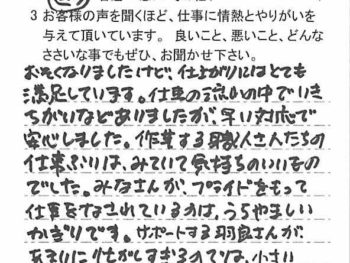 3 お客様の声を聞くほど、仕事に情熱とやりがいを
与えて頂いています。良いこと、悪いこと、どんな
ささいな事でもぜひ、お聞かせ下さい。
おそくなりましたけど、仕上がりにはとても
満足しています。仕事の流れの中でいき
ちがいなどありましたが、早い対応で
安心しました。作業する職人さんたちの
仕事ぶりは、みていて気持ちのいいもの
でした。みなさんが、プライドをもって
仕事をなされているのは、うらやましい
かぎりです。サポートする羽良さんが、
あまりに忙がしすぎるのでは、小さい